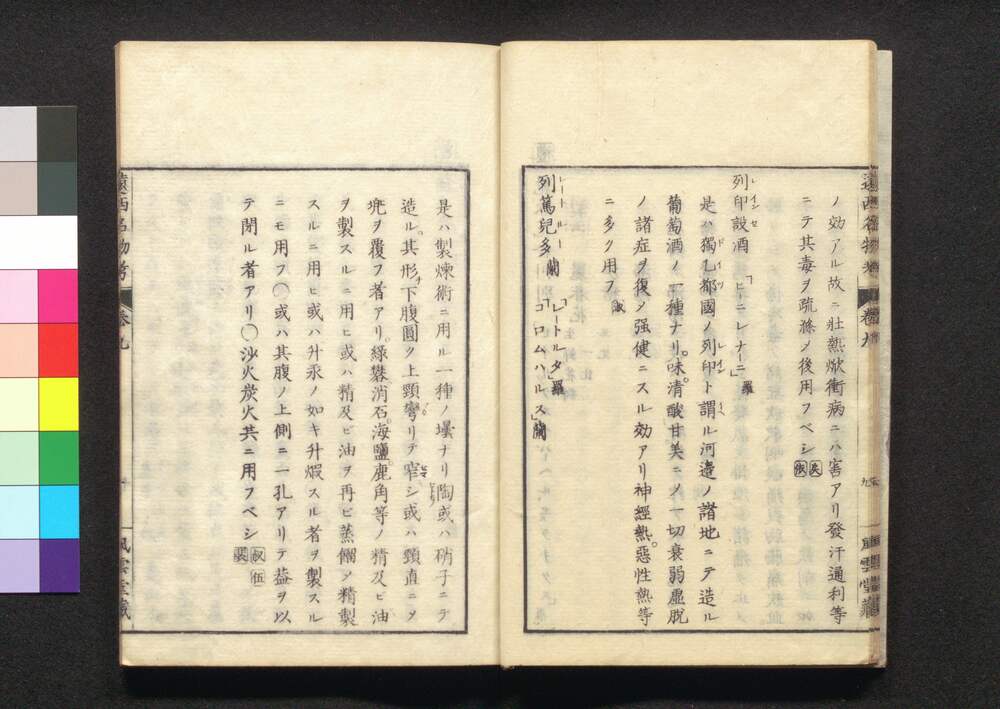 遠西名物考 卷九
ノ効アル故ニ壯熱焮衝病ニハ害アリ發汗通利等
ニテ其毒ヲ疏滌メ後用フベシ
列印設酒 「ヒーニレナーニ」羅
是ハ獨乙都國ノ列印ト謂ル河邉ノ諸地ニテ造ル
葡萄酒ノ一種ナリ。味清酸甘美ニメ一切衰弱虚脱
ノ諸症ヲ復メ強健ニスル効アリ神經熱。惡性熱等
ニ多ク用フ
列篤兒多蘭 「レートルタ」羅 「コロムハルス」蘭
風雲堂藏
是ハ製煉術ニ用ル一種ノ壜ナリ陶或ハ硝子ニテ
造ル。其形下腹圓ク上頸彎リテ窄シ或ハ頸直ニメ
兠ヲ覆フ者アリ。緑礬消石。海鹽鹿角等ノ精及ビ油
ヲ製スルニ用ヒ或ハ精及ビ油ヲ再ビ蒸餾メ精製
スルニ用ヒ或ハ升汞ノ如キ升煆スル者ヲ製スル
ニモ用フ〇或ハ其腹ノ上側ニ一孔アリテ葢ヲ以
テ閉ル者アリ〇沙火炭火共ニ用フベシ
遠西名物考 卷九
風雲堂藏